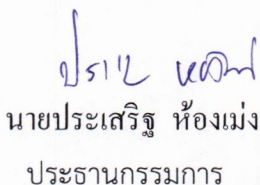 นายประเสริฐ ห้องเม่ง
ประธานกรรมการ